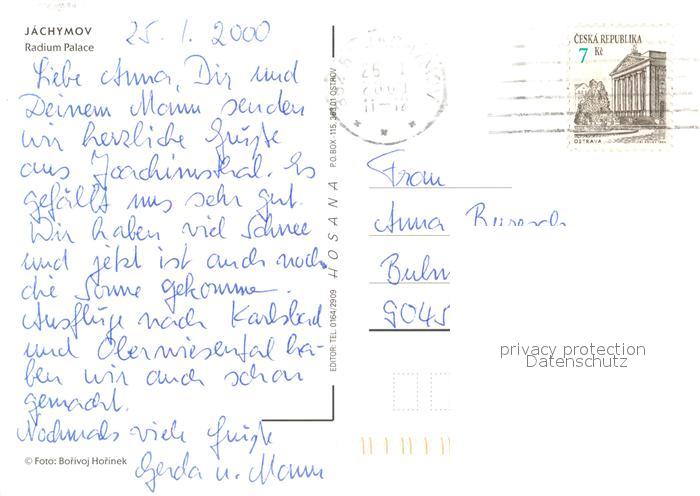 JÁCHYMOV
Radium Palace
25. 1. 2000
Liebe Anna, Dir und
Deinem Mann senden
wir herzliche Grüße
aus Joachimsthal. Es
gefällt uns sehr gut.
Wir haben viel Schnee
und jetzt ist auch noch
die Sonne gekommen.
Ausflüge nach Karlsbad
und Oberwiesental ha-
ben wir auch schon
gemacht.
Nochmals viele Grüße
Gerda u. Mann
© Foto: Bořivoj Hořinek
EDITOR: TEL. 0164/2909 HOSANA P.O.BOX 115, 363 01 OSTROV
ČESKÁ REPUBLIKA
7 Kč
OSTRAVA
Frau
Anna
9045
privacy protection
Datenschutz